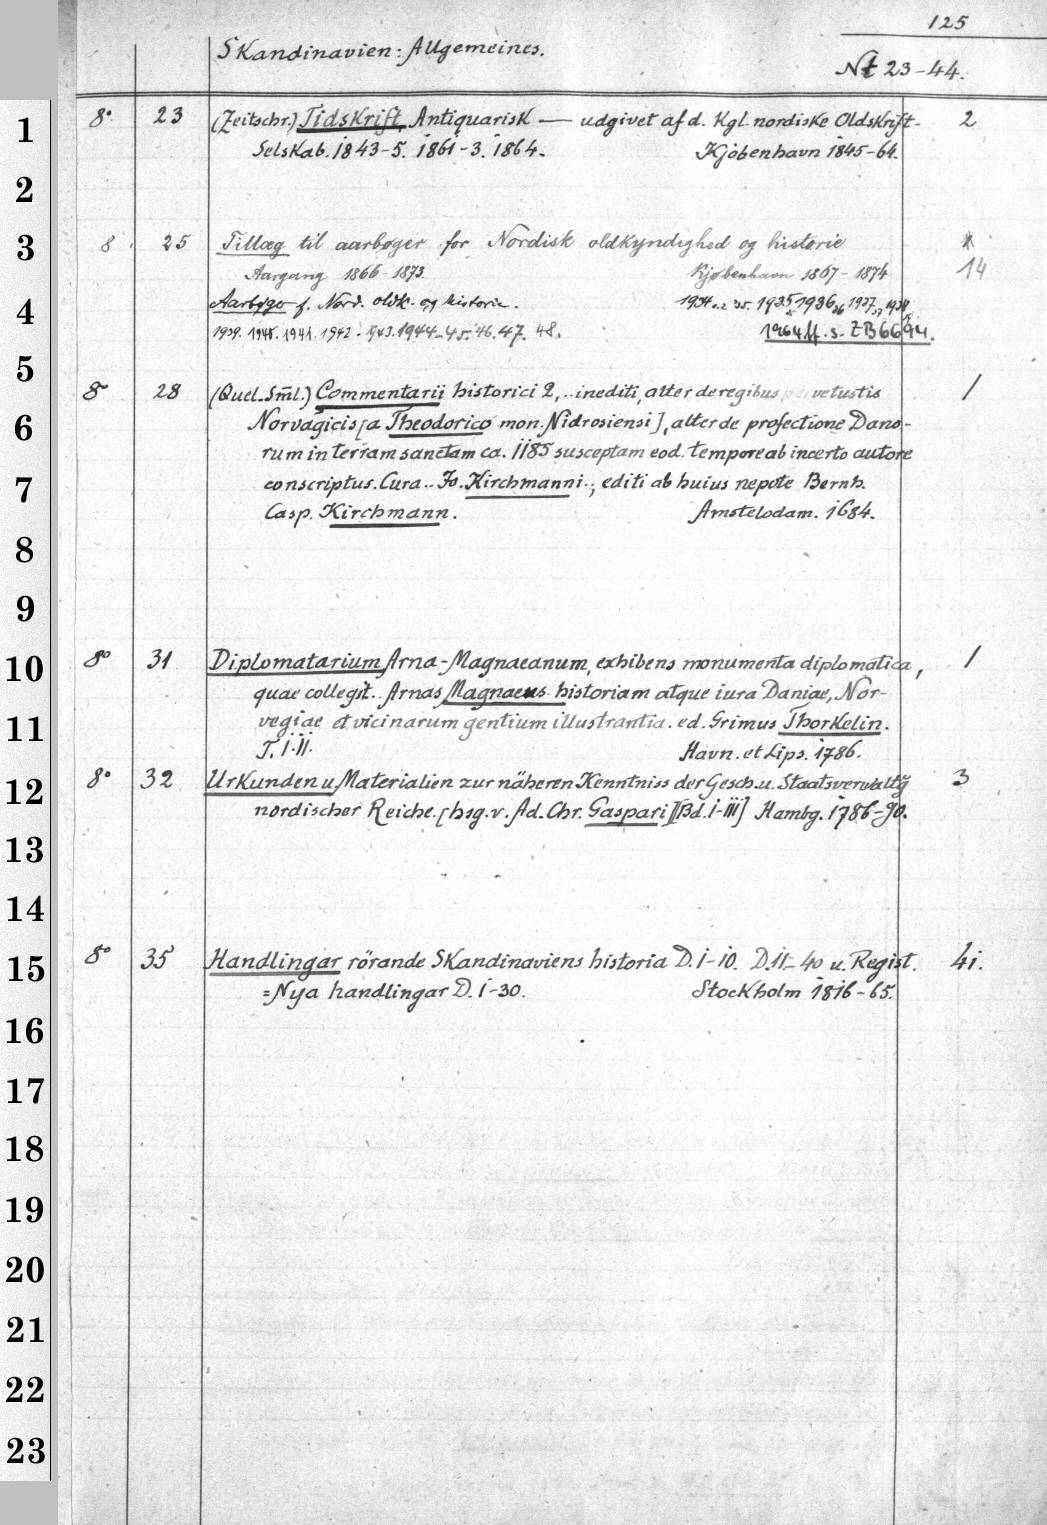 125
Skandinavien: Allgemeines.
Nt 23-44.
1 8° 23 (Zeitschr.) Tidskrift, Antiquarisk — udgivet af d. Kgl. nordiske Oldskrift- 2
Selskab. 1843-5. 1861-3. 1864. Kjöbenhavn 1845-64.
2
3 8 25 Tillæg til aarbøger for Nordisk oldkyndighed og historie
Aargang 1866-1873 Kjøbenhavn 1867-1874 14
4 Aarbøger f. Nord. oldk. og historie. 1934 35. 1935 1936 1937 1938
1939. 1940. 1941. 1942. 1943. 1944-45. 46. 47. 48. 1964 ff. s. ZB 6694.
5
8° 28 (Quel. Sml.) Commentarii historici 2, .. inediti, alter de regibus vetustis 1
6 Norvagicis [a Theodorico mon. Nidrosiensi], alter de profectione Dano-
rum in terram sanctam ca. 1185 susceptam eod. tempore ab incerto autore
7 conscriptus. Cura .. Jo. Kirchmanni.; editi ab huius nepote Bernh.
Casp. Kirchmann. Amstelodam. 1684.
8
9
10 8° 31 Diplomatarium Arna-Magnaeanum, exhibens monumenta diplomatica, 1
quae collegit .. Arnas Magnaeus historiam atque iura Daniae, Nor-
11 vegiae et vicinarum gentium illustrantia. ed. Grimus Thorkelin.
T. I.II. Havn. et Lips. 1786.
12 8° 32 Urkunden u. Materialien zur näheren Kenntniss der Gesch. u. Staatsverwaltg 3
nordischer Reiche. [hsg. v. Ad. Chr. Gaspari] [Bd. I-III] Hambg. 1786-90.
13
14
15 8° 35 Handlingar rörande Skandinaviens historia D. 1-10. D. 11-40 u. Regist. 41.
= Nya handlingar D. 1-30. Stockholm 1816-65.
16
17
18
19
20
21
22
23